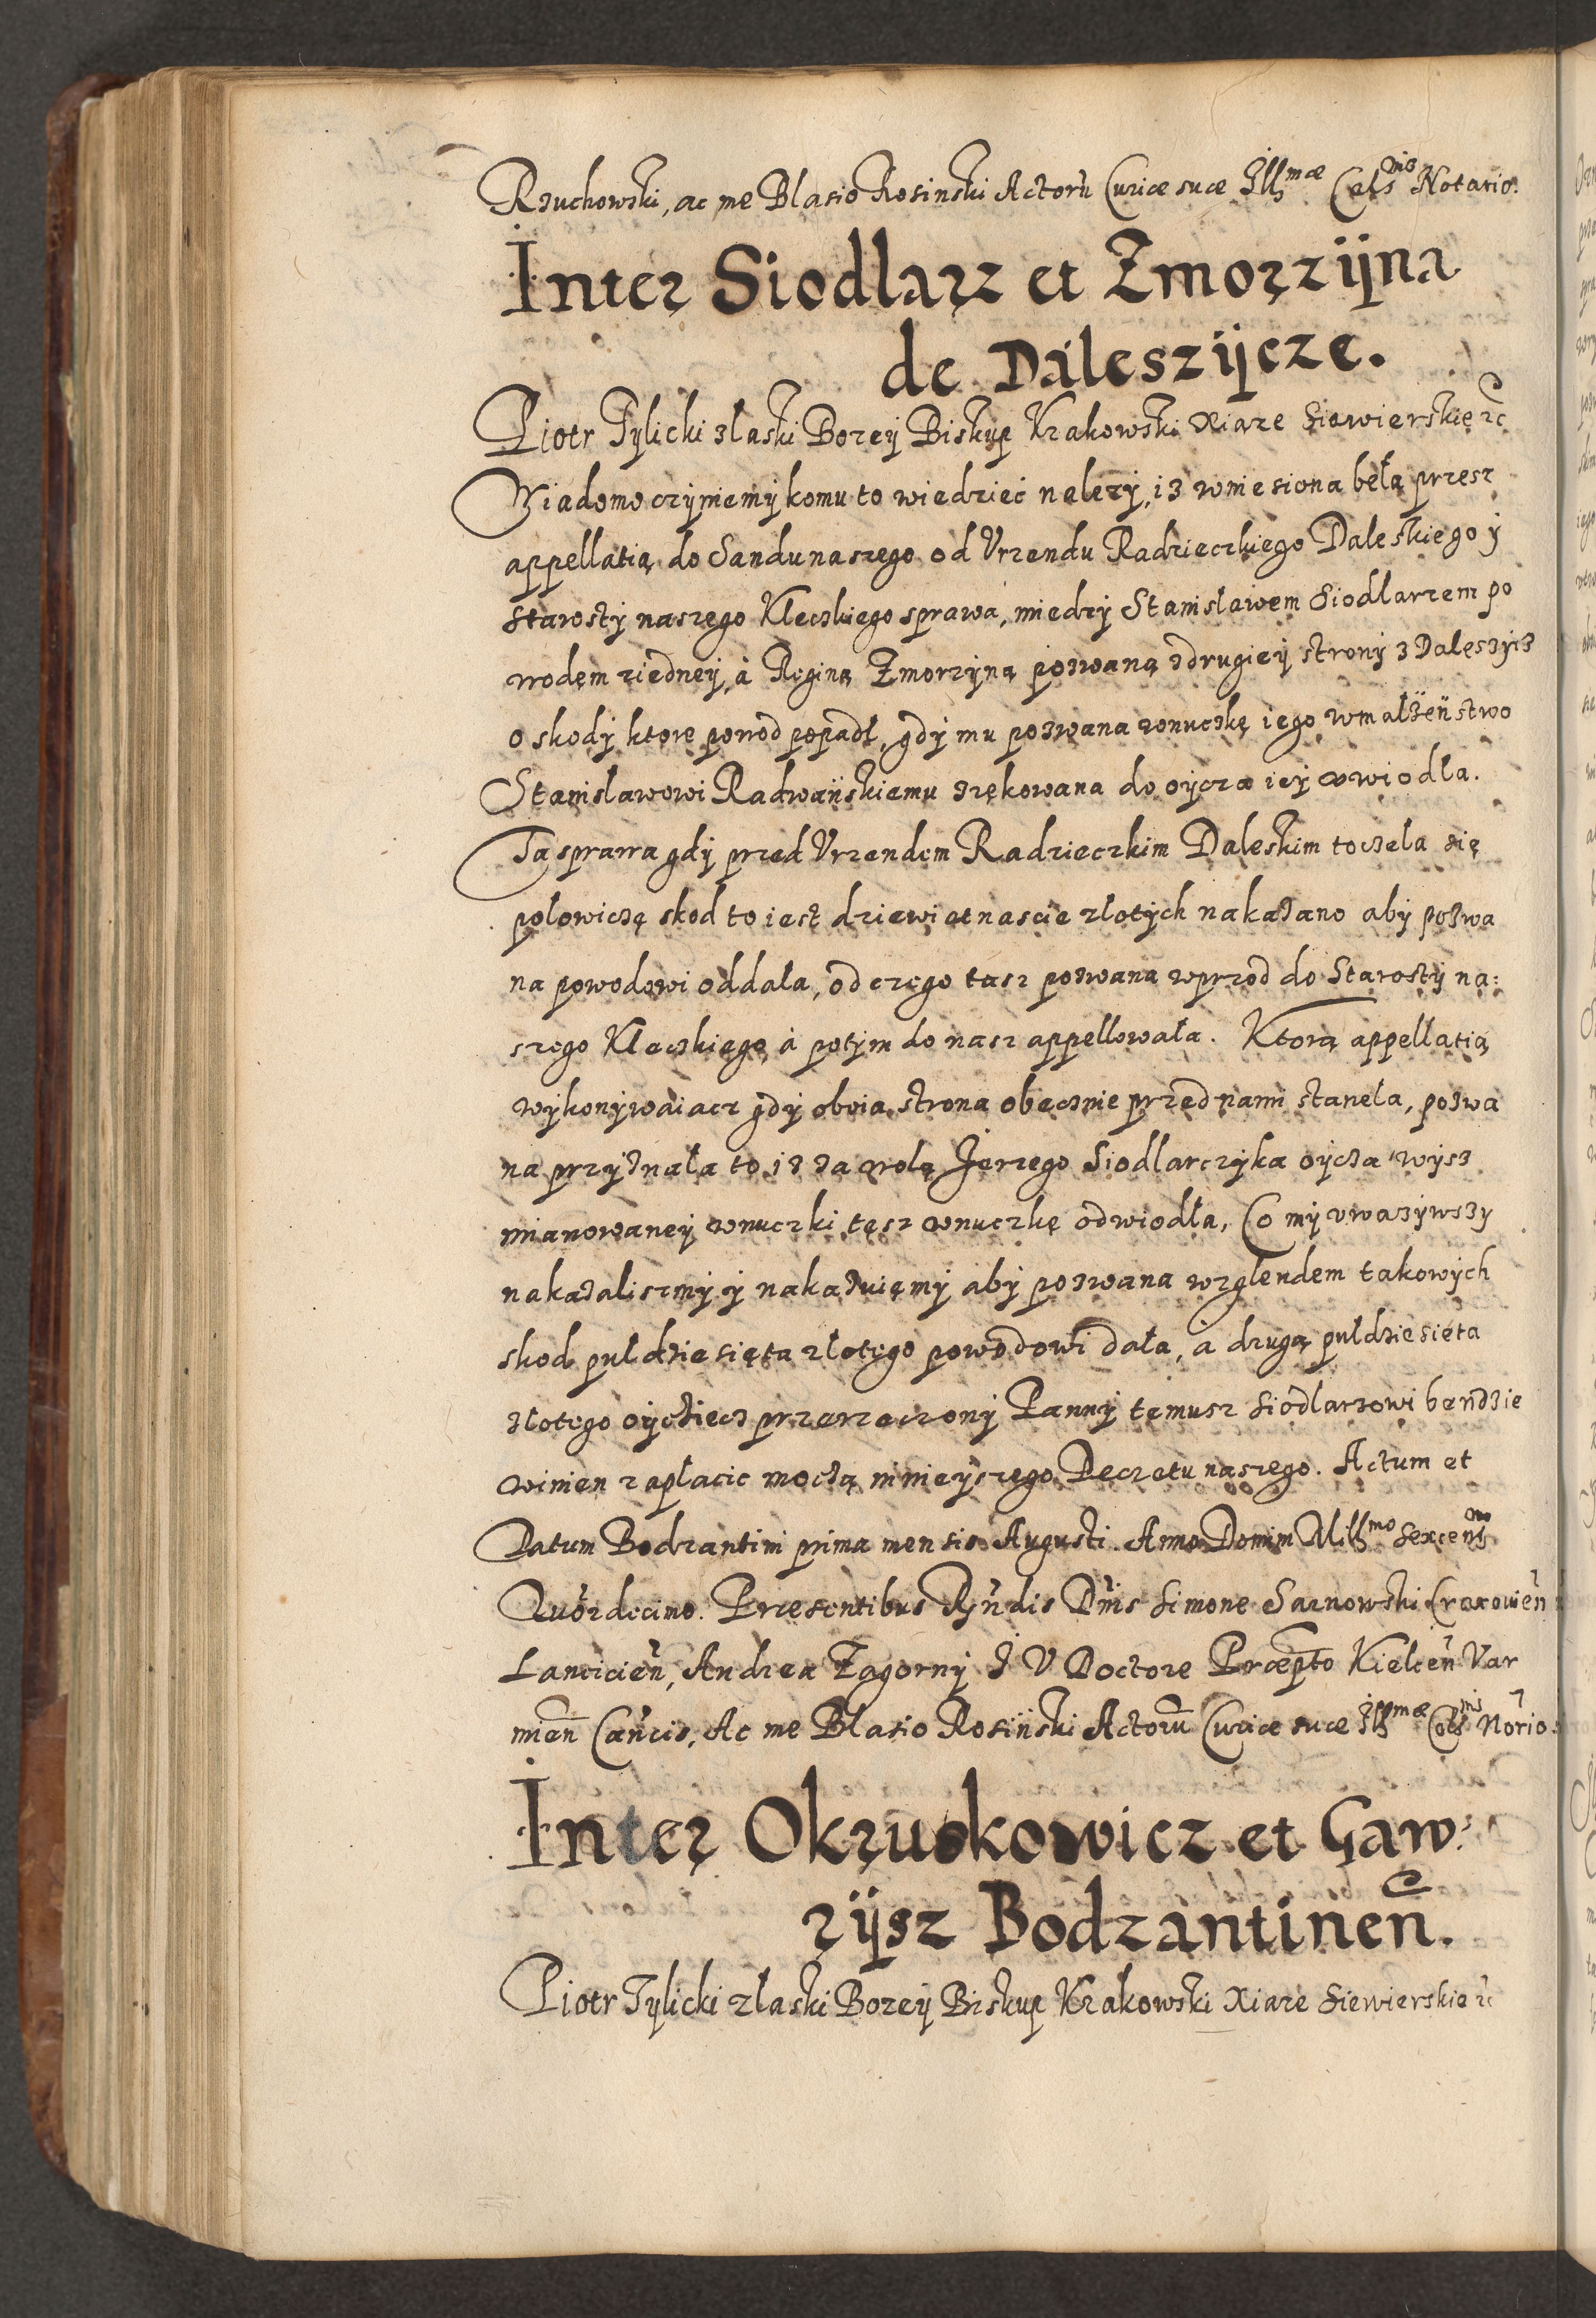 Rzuchowski, ac me Blasio Rosinski Actorū Curiæ suæ Illmæ Celsnis Notario.
Inter Siodlarz et Zmorzÿna
de Daleszÿcze.
Piotr Tylicki zlaski Bozeÿ Biskup Krakowski Xiaze Siewierskię etc
Wiadomo czÿniemÿ komu to wiedziec nalezÿ, iz wniesiona beła przesz
appellatią do Sandu naszego od Vrzendu Radzieczkiego Daleskiego ÿ
Starostÿ naszego Kleczkiego sprawa, miedzÿ Stanislawem Siodlarzem po
wodem ziedneÿ, à Reginą Zmorzÿną pozwaną zdrugieÿ stronÿ z Daleszÿcz
o skodÿ ktore powod popadł, gdÿ mu pozwana wnuczkę iego wmałżeństwo
Stanislawowi Radwańskiemu zrękowana do oÿcza ieÿ odwiodła.
Ta sprawa gdÿ przed Vrzendem Radzieczkim Daleskim toczela się
polowiczę skod to iest dziewietnascie złotÿch nakazano abÿ pozwa
na powodowi oddała, od czego tasz pozwana wprzod do Starostÿ na:
szego Kleczkiego, à potÿm do nasz appellowała. Ktorą appellatią
wÿkonÿwaiacz gdÿ oboia strona obecznie przed nami staneła, pozwa
na przÿznała to iz za wolą Jerzego Siodlarczÿka oÿcza wÿsz
mianowaneÿ wnuczki tęsz wnuczkę odwiodła, Co mÿ vwazÿwszÿ
nakazaliszmÿ ÿ nakazuięmÿ abÿ pozwana wzglendem takowÿch
skod puł dziesięta złotego powodowi dała, à drugą pułdziesięta
złotego oÿcziecz przerzeczonÿ Pannÿ temusz Siodlarzowi bendzie
winien zapłacic moczą ninieÿszego Decretu naszego. Actum et
Datum Bodzantini prima mensis Augusti. Anno Domini Millmo Sexcenmo
Quōrdecimo. Præsentibus Rṽndis Dn̄is Simone Sarnowski Cracovien̄
Lancicien̄, Andrea Zagornÿ I V Doctore Præpto Kielcen̄ Var
mien̄ Can̄cis, Ac me Blasio Rosiński Actorū Curiæ suæ Illmæ Celsnis Nōrio.
Inter Okruskowicz et Gaw:
rÿsz Bodzantinen̄.
Piotr Tylicki złaski Bozeÿ Biskup Krakowski Xiaze Siewierskie etc